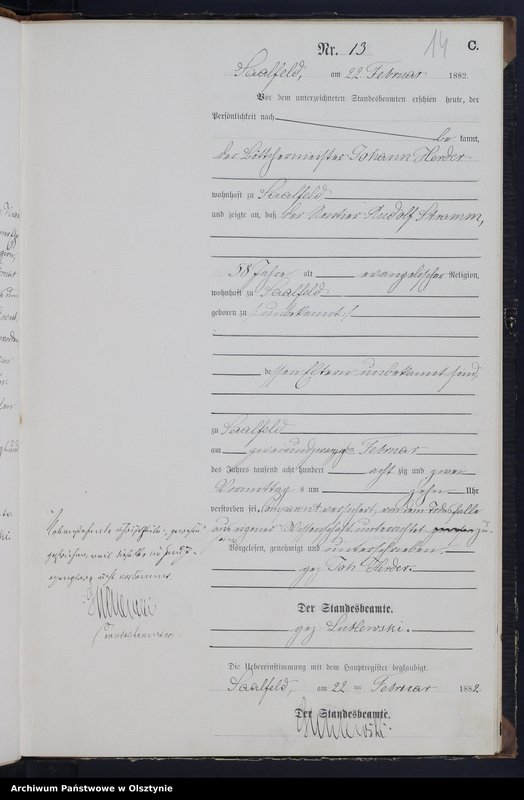 Nr. 13
14
C.
Saalfeld, am 22 Februar 1882.
Vor dem unterzeichneten Standesbeamten erschien heute, der
Persönlichkeit nach
be kannt,
der Böttchermeister Johann Herder
wohnhaft zu Saalfeld
und zeigte an, daß der Rentier Rudolf Stramm,
58 Jahre alt evangelischer Religion,
wohnhaft zu Saalfeld
geboren zu /: unbekannt :/
de ssen Eltern unbekannt sind,
zu Saalfeld
am zweiundzwanzigsten Februar
des Jahres tausend acht hundert acht zig und zwei
Vormittag s um zehn Uhr
verstorben sei, Comparent versichert, von dem Todesfalle
aus eigener Wissenschaft unterrichtet zu
sein.
Vorgelesen, genehmigt und unterschrieben.
gez. Joh. Herder.
Der Standesbeamte.
gez. Lublewski.
Die Uebereinstimmung mit dem Hauptregister beglaubigt
Saalfeld, am 22 ten Februar 1882.
Der Standesbeamte.
Lublewski.
gestrichen, weil dieselbe
Standesbeamter.
Archiwum Państwowe w Olsztynie